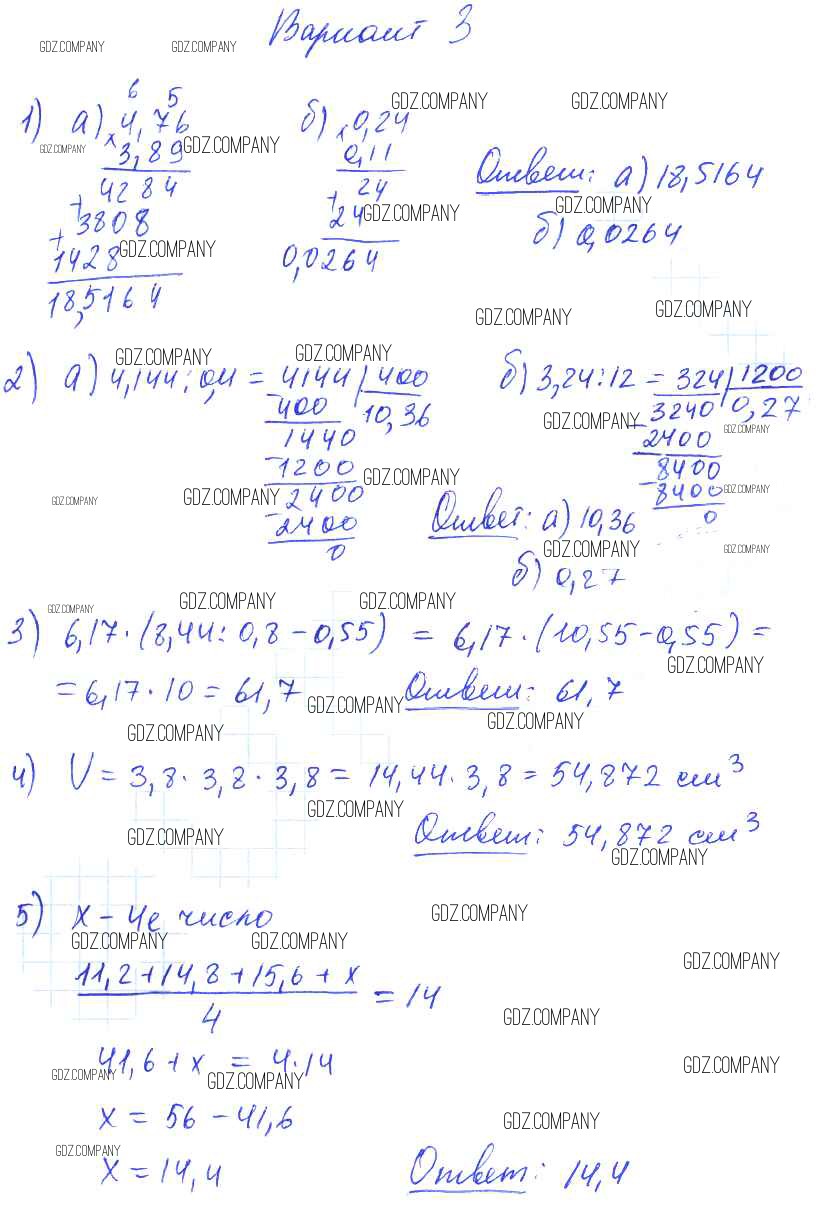 Вариант 3
GDZ.COMPANY GDZ.COMPANY
6 5
1) а) × 4,76 б) × 0,24 GDZ.COMPANY GDZ.COMPANY
GDZ.COMPANY 3,89 GDZ.COMPANY 0,11
4284 24 Ответ: а) 18,5164
+ 3808 + 24 GDZ.COMPANY GDZ.COMPANY
+ 1428 GDZ.COMPANY 0,0264 б) 0,0264
18,5164
GDZ.COMPANY GDZ.COMPANY
GDZ.COMPANY GDZ.COMPANY
2) а) 4,144 : 0,4 = 4144 | 400 б) 3,24 : 12 = 324 | 1200
- 400 10,36 GDZ.COMPANY 3240 0,27
1440 - 2400 GDZ.COMPANY
- 1200 GDZ.COMPANY 8400
GDZ.COMPANY GDZ.COMPANY 2400 - 8400 GDZ.COMPANY
- 2400 Ответ: а) 10,36 0
0 GDZ.COMPANY GDZ.COMPANY
б) 0,27
GDZ.COMPANY GDZ.COMPANY GDZ.COMPANY
3) 6,17 · (8,44 : 0,8 - 0,55) = 6,17 · (10,55 - 0,55) =
GDZ.COMPANY
= 6,17 · 10 = 61,7 GDZ.COMPANY Ответ: 61,7
GDZ.COMPANY GDZ.COMPANY
4) V = 3,8 · 3,8 · 3,8 = 14,44 · 3,8 = 54,872 см³
GDZ.COMPANY
GDZ.COMPANY Ответ: 54,872 см³
GDZ.COMPANY
5) х - 4е число GDZ.COMPANY
GDZ.COMPANY GDZ.COMPANY
GDZ.COMPANY
11,2 + 14,8 + 15,6 + х
= 14
4 GDZ.COMPANY
41,6 + х = 4 · 14
GDZ.COMPANY GDZ.COMPANY GDZ.COMPANY
х = 56 - 41,6 GDZ.COMPANY
GDZ.COMPANY
х = 14,4 Ответ: 14,4